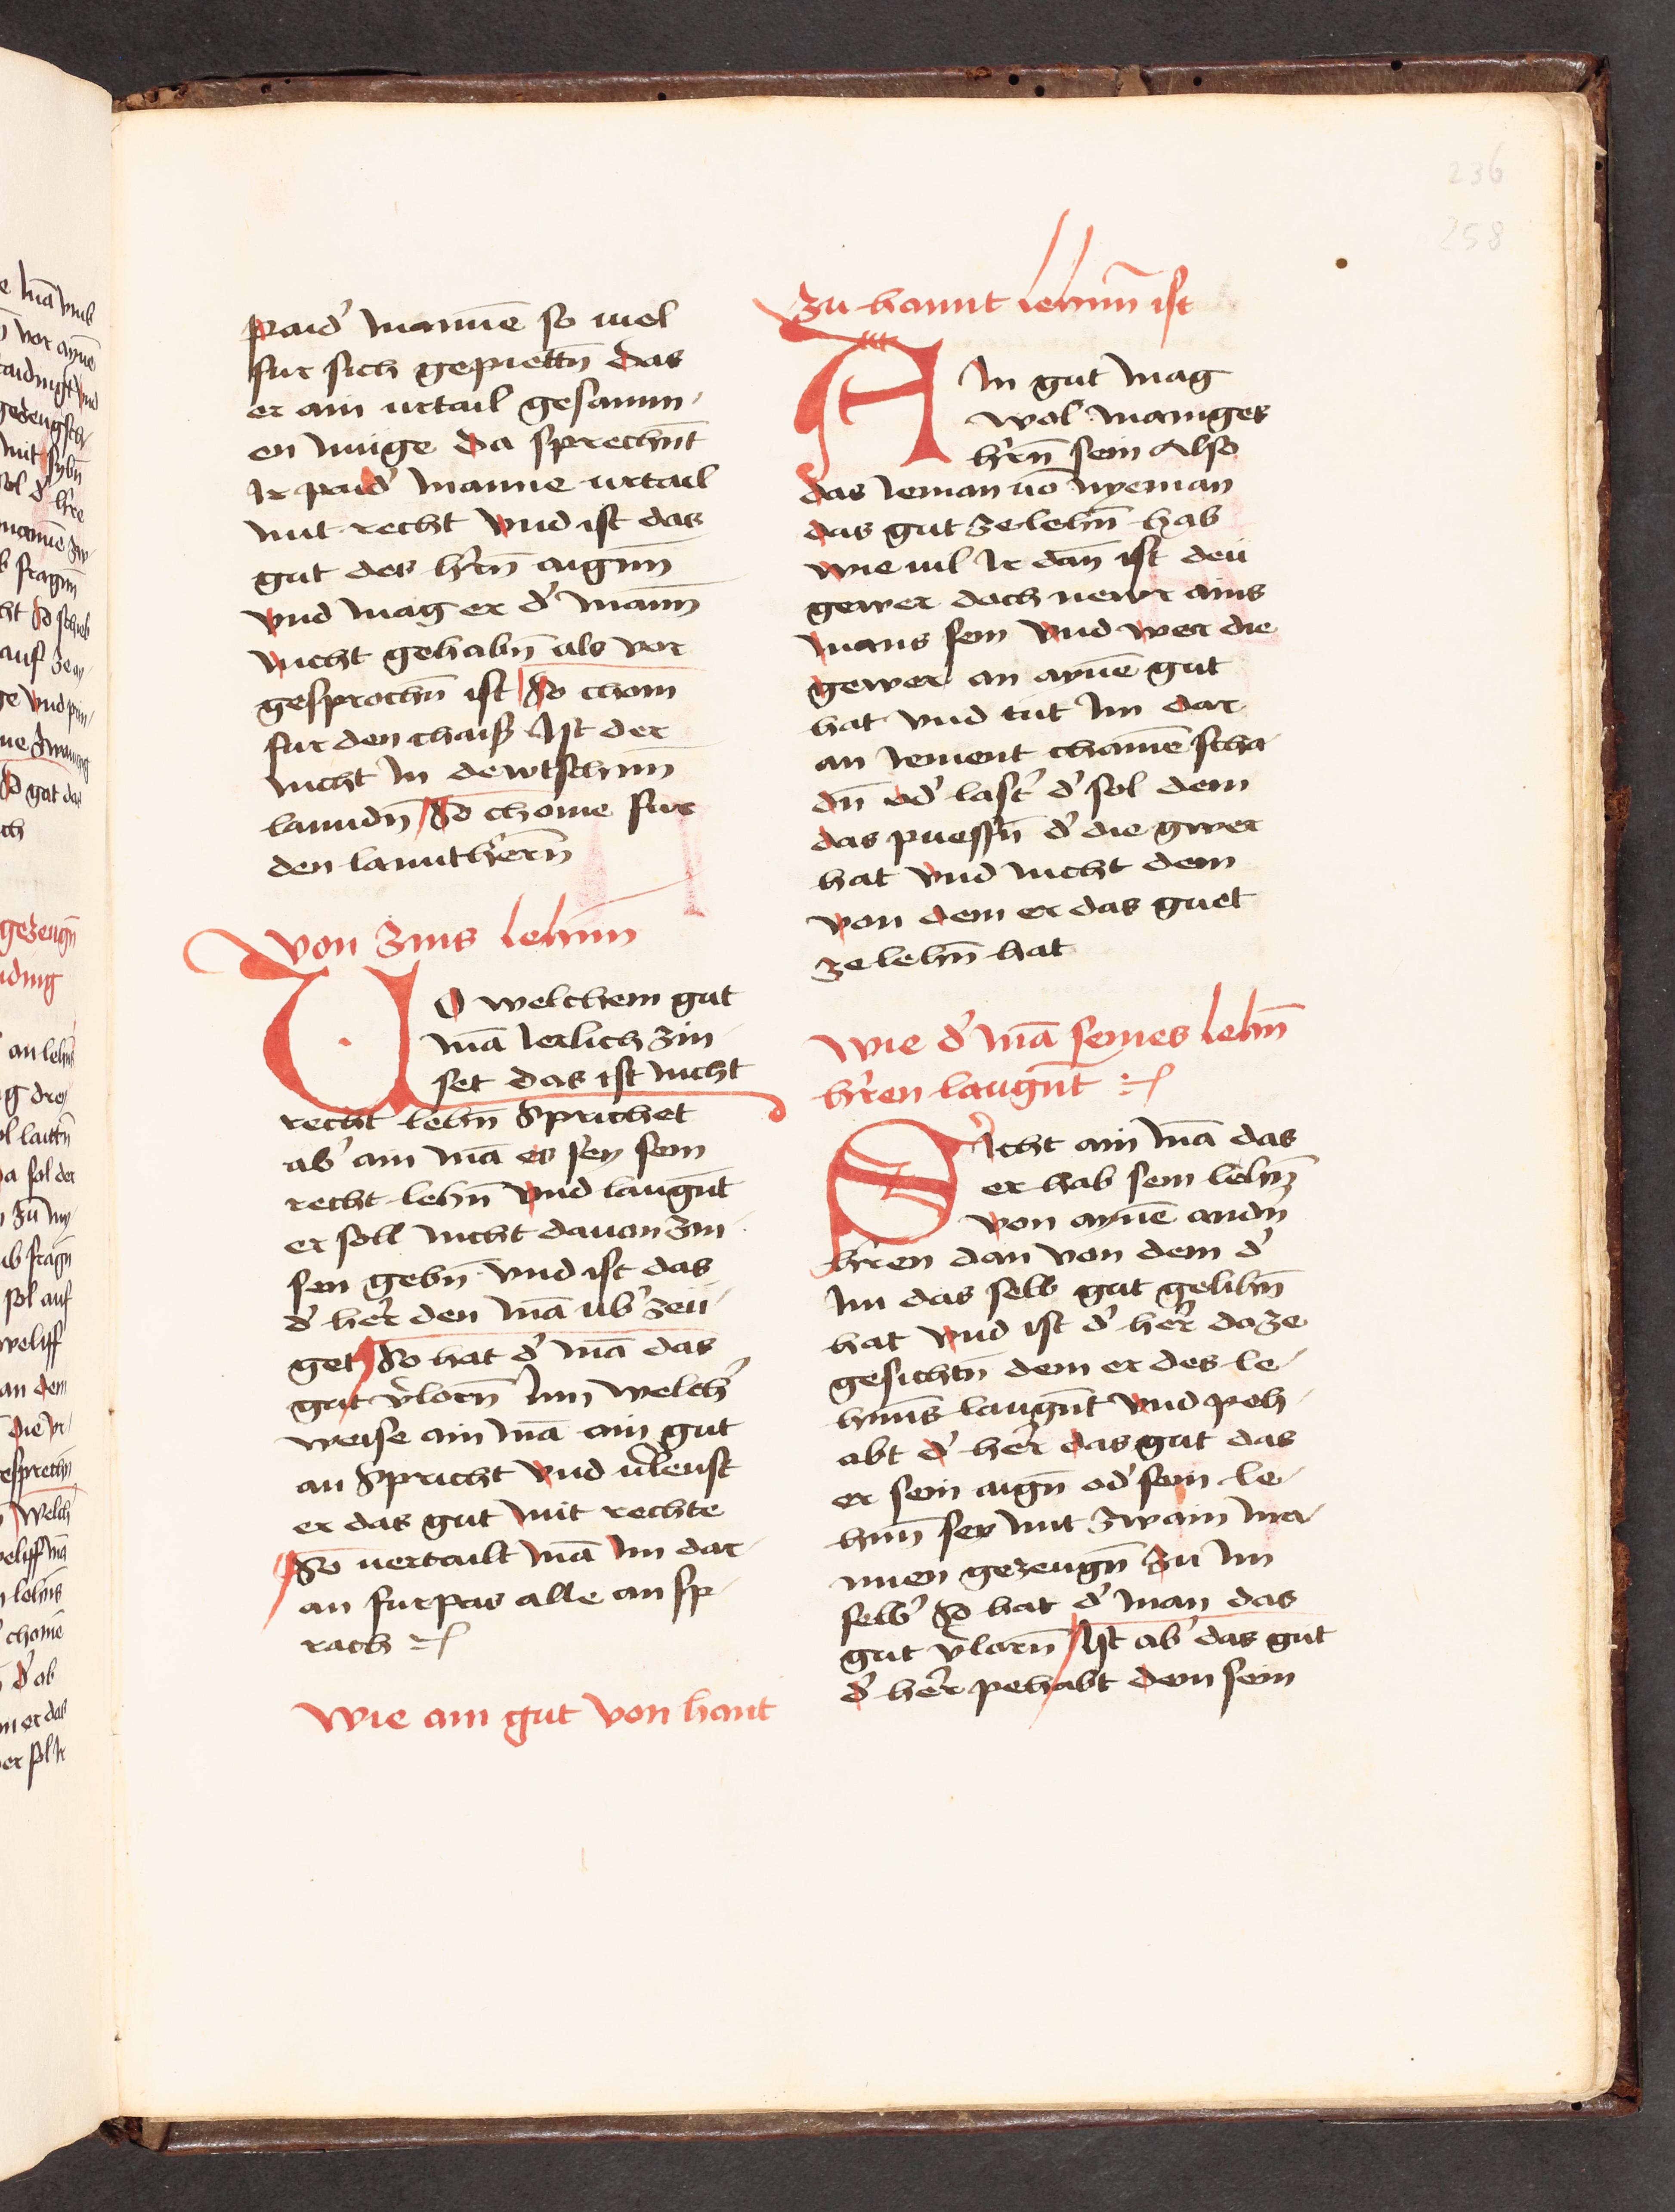 236
258
paid' mannē so uiel
fur sich gepiettn̄ das
er ain urtail gesamm-
en müge da sprechnt̄
Ir paid' manne urtail
mit recht vnd ist das
gut des hr̄n aignn̄
vnd mag er d' mann̄
nicht gehabn̄ als vor
gesprochn̄ ist So chom
fur den chaiß Ist der
nicht In dewtschnn̄
lanndn̄ So chome fur
den lanntherrn̄
von zins lehnn̄
Uo welchem gut
mā Ierlich zin-
set das ist nicht
recht lehn̄ Sprichet
ab' ain mā es sey sein
recht lehn̄ vnd laugn̄t
er soll nicht dauon zin-
sen gebn̄ vnd ist das
d' her̄ den mā ub' zeü-
get So hat d' mā das
gut v'lorn̄ Inn welch'
weise ain mā ain gut
an Spricht vnd u'leust
er das gut mit rechte
So uertailt mā Im dar-
an furpas alle an sp-
rach
Wie ain gut von hant
zu hannt lehnn̄ ist
AIn gut mag
wol maniges
hr̄n sein Also
das Ieman uō nyeman
das gut ze lehn̄ hab
wie uil Ir dan̄ ist deü
gewer doch newr ains
mans sein vnd wer die
gewer an aynē gut
hat vnd tut Im dar
an Iement chainē scha-
dn̄ od' last' d' sol dem
das puessn̄ d' die gwer
hat vnd nicht dem
von dem er das guet
ze lehn̄ hat
Wie d' mā seines lehn̄
hr̄en laugn̄t
GIcht ain mā das
er hab sein lehn̄
von aynē andn̄
hr̄en dan von dem d'
Im das selb gut gelihn̄
hat vnd ist d' her̄ da ze
gesichtn̄ dem er des le-
hnn̄s laugn̄t vnd peh-
abt d' her̄ das gut das
er sein aign̄ od' sein le-
hnn̄ sey mit zwain ma-
nnen gezeugn̄ zu Im
selb' So hat d' man das
gut v'lorn̄ Ist ab' das gut
d' her̄ pehabt dem sein